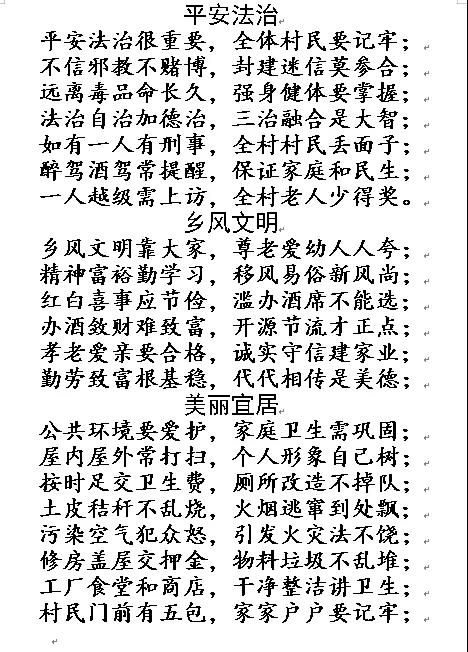 平安法治
平安法治很重要，全体村民要记牢；
不信邪教不赌博，封建迷信莫参合；
远离毒品命长久，强身健体要掌握；
法治自治加德治，三治融合是大智；
如有一人有刑事，全村村民丢面子；
醉驾酒驾常提醒，保证家庭和民生；
一人越级需上访，全村老人少得奖。
乡风文明
乡风文明靠大家，尊老爱幼人人夸；
精神富裕勤学习，移风易俗新风尚；
红白喜事应节俭，滥办酒席不能选；
办酒敛财难致富，开源节流才正点；
孝老爱亲要合格，诚实守信建家业；
勤劳致富根基稳，代代相传是美德；
美丽宜居
公共环境要爱护，家庭卫生需巩固；
屋内屋外常打扫，个人形象自己树；
按时足交卫生费，厕所改造不掉队；
土皮秸秆不乱烧，火烟逃窜到处飘；
污染空气犯众怒，引发火灾法不饶；
修房盖屋交押金，物料垃圾不乱堆；
工厂食堂和商店，干净整洁讲卫生；
村民门前有五包，家家户户要记牢；